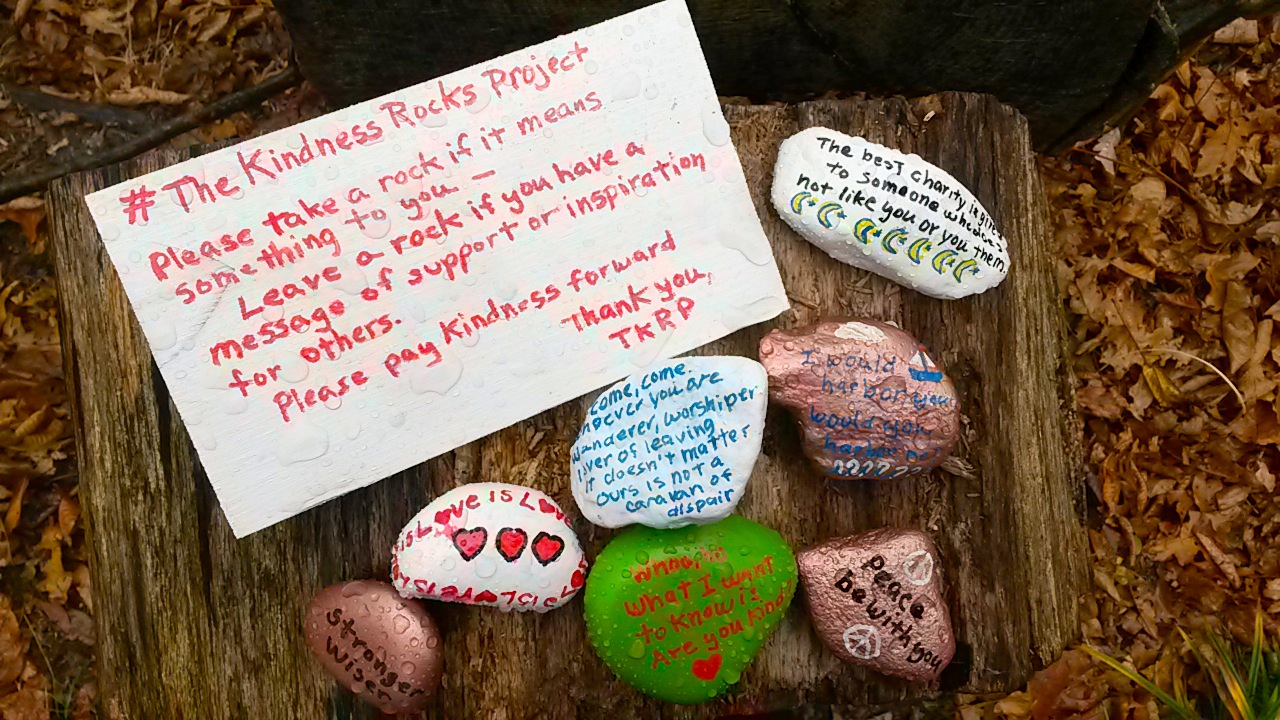 # The Kindness Rocks Project
Please take a rock if it means
something to you -
Leave a rock if you have a
message of support or inspiration
for others.
Please pay Kindness forward
Thank you,
TKRP
The best charity is
to someone who does
not like you or you them.
I would
harbor you
would you
harbor
???????
come, come.
you are
wanderer, worshiper
lover of leaving
it doesn't matter
ours is not a
caravan of
dispair
is Love is Love
What I want
to know is
Are you kind?
Peace
be with you
Stronger
Wiser